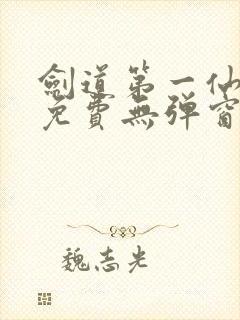 劍道第一仙
免費無彈窗
魏志光